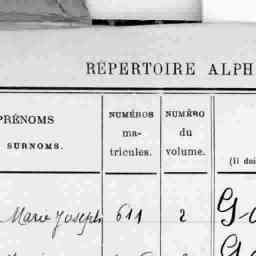 RÉPERTOIRE ALPH
PRÉNOMS
SURNOMS.
NUMÉROS
ma-
tricules.
NUMÉRO
du
volume.
(Il doi
Marie Joseph 611 2